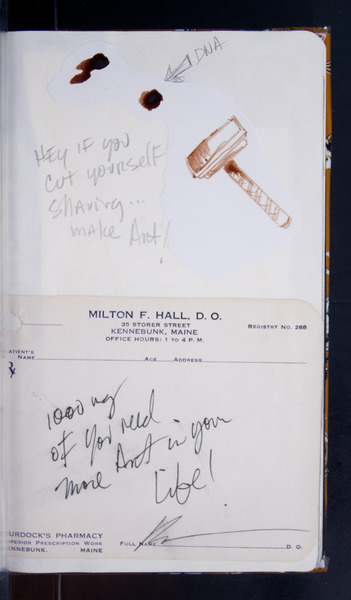 DNA
HEY IF YOU
CUT YOURSELF
SHAVING...
MAKE ART!
MILTON F. HALL, D. O.
35 STORER STREET
KENNEBUNK, MAINE
OFFICE HOURS: 1 TO 4 P. M.
REGISTRY NO. 268
PATIENT'S
NAME
AGE ADDRESS
1000 mg
of you need
more Art in your
Life!
MURDOCK'S PHARMACY
SUPERIOR PRESCRIPTION WORK
KENNEBUNK, MAINE
FULL NAME D. O.